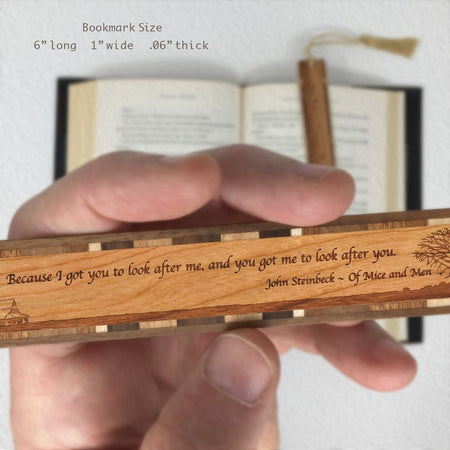 Bookmark Size
6” long 1” wide .06” thick
Because I got you to look after me, and you got me to look after you.
John Steinbeck ~ Of Mice and Men